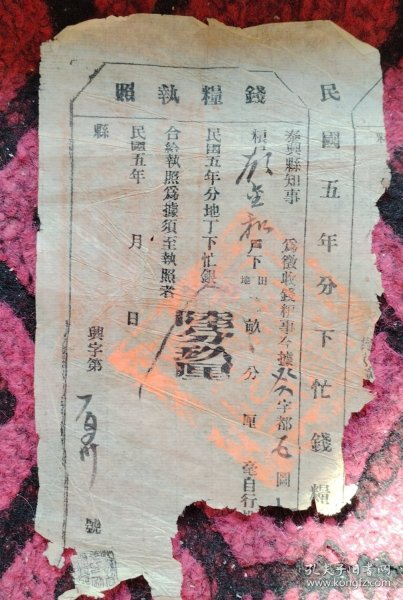 民國五年分下忙錢糧
錢糧執照
泰興縣知事 為徵收錢糧事今據 字都 石 圖
糧 戶下 田地 畝 分 厘 毫自行
民國五年分地丁下忙銀
陸分玖厘
合給執照爲據須至執照者
民國五年 月 日
縣 興字第 號
孔夫子旧书网
www.kongfz.com